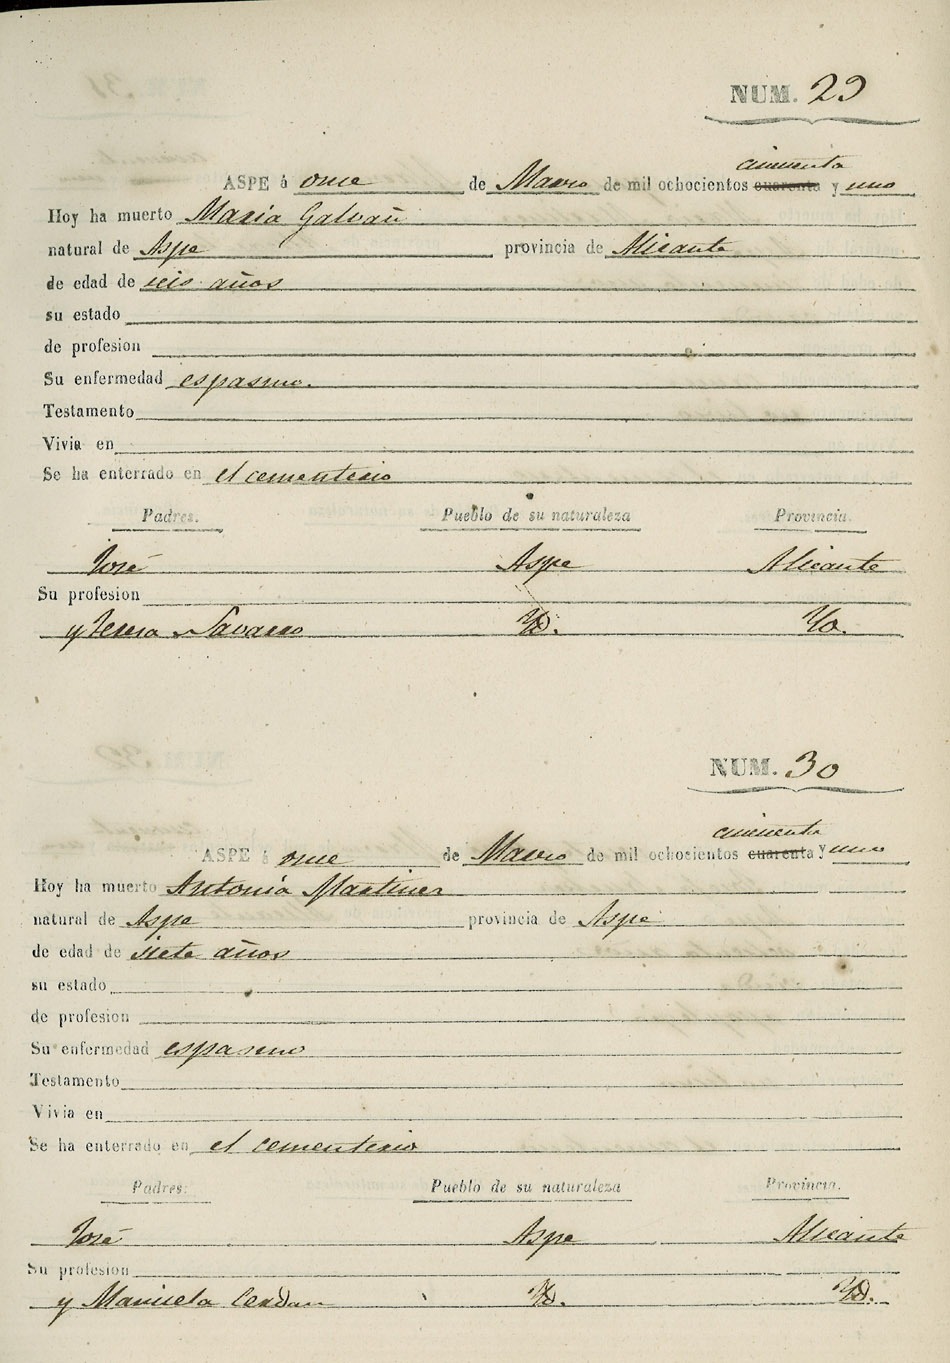 NUM. 29
cincuenta
ASPE á once de Marzo de mil ochocientos cuarenta y uno
Hoy ha muerto Maria Galvañ
natural de Aspe provincia de Alicante
de edad de seis años
su estado
de profesion
Su enfermedad espasmo.
Testamento
Vivia en
Se ha enterrado en el cementerio
Padres. Pueblo de su naturaleza Provincia.
José Aspe Alicante
Su profesion
y Teresa Navarro Yd. Yd.
NUM. 30
cincuenta
ASPE á once de Marzo de mil ochocientos cuarenta y uno
Hoy ha muerto Antonia Martinez
natural de Aspe provincia de Aspe
de edad de siete años
su estado
de profesion
Su enfermedad espasmo
Testamento
Vivia en
Se ha enterrado en el cementerio
Padres: Pueblo de su naturaleza Provincia.
José Aspe Alicante
Su profesion
y Manuela Cerdan Yd. Yd.